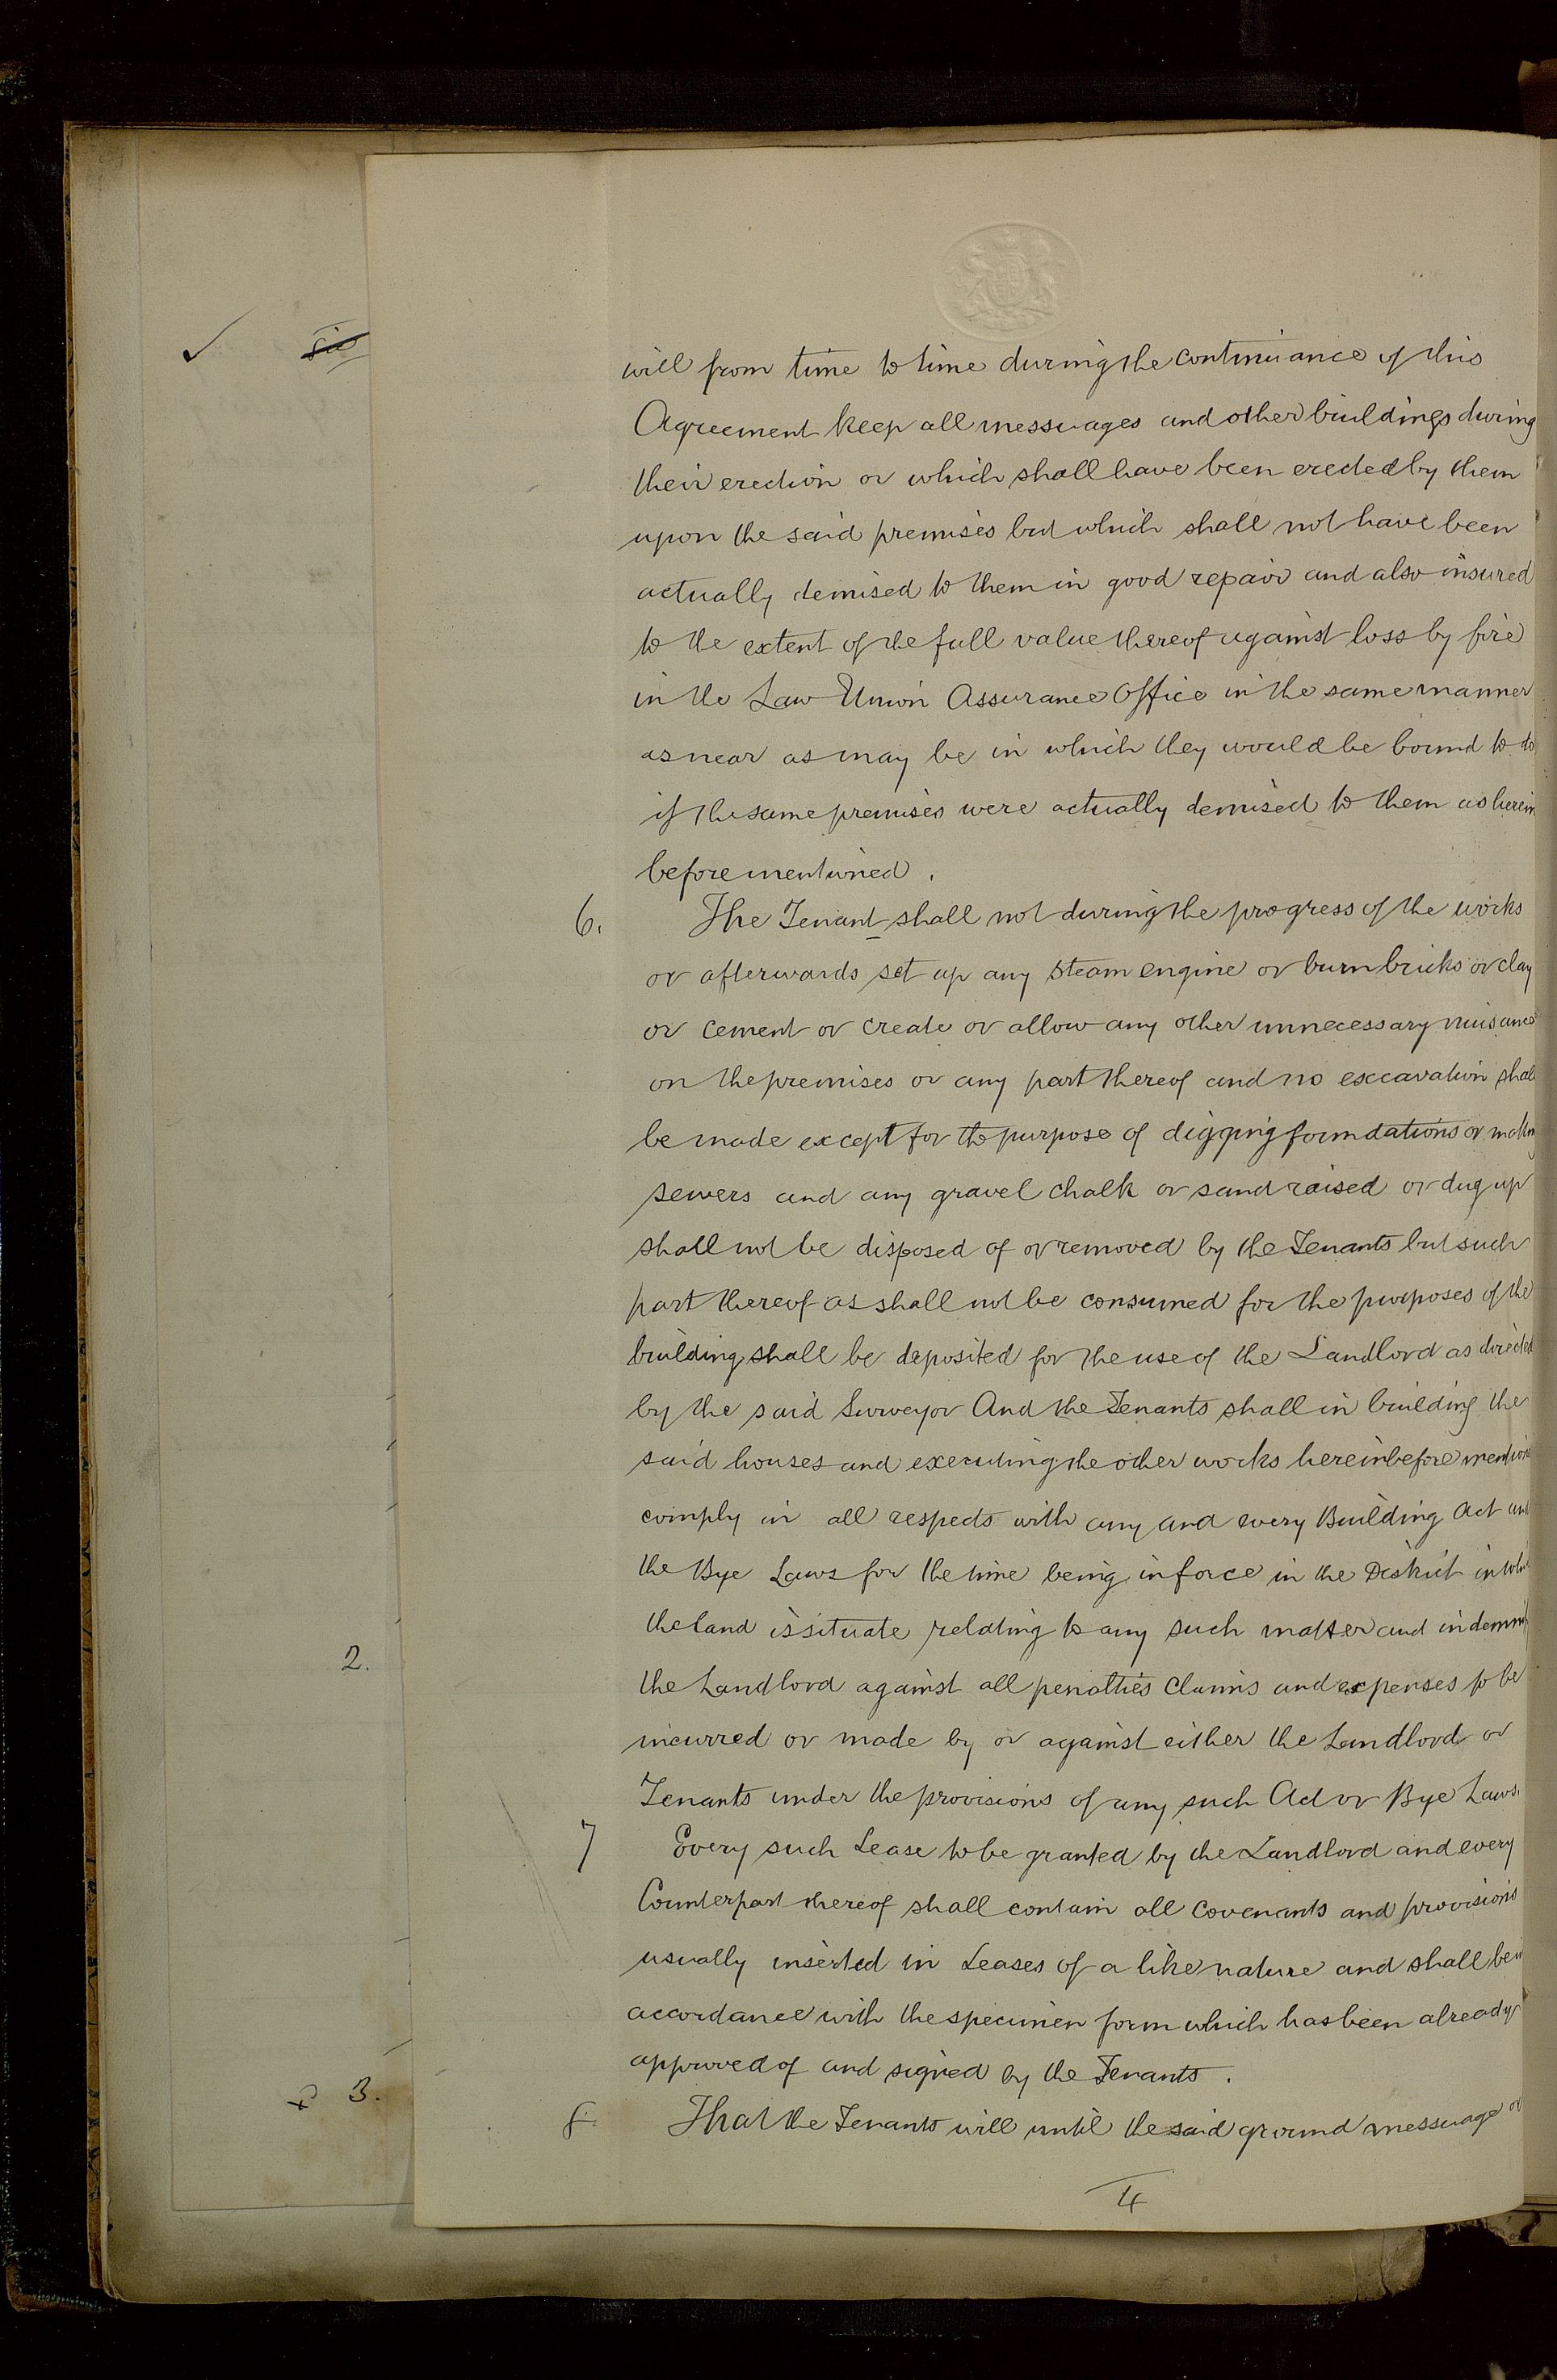 will from time to time during the continuance of this
Agreement keep all messuages and other buildings during
their erection or which shall have been erected by them
upon the said premises but which shall not have been
actually demised to them in good repair and also insured
to the extent of the full value thereof against loss by fire
in the Law Union Assurance Office in the same manner
as near as may be in which they would be bound to do
if the same premises were actually demised to them as herein
before mentioned.
6. The Tenant shall not during the progress of the works
or afterwards set up any steam engine or burn bricks or clay
or cement or create or allow any other unnecessary nuisance
on the premises or any part thereof and no excavation shall
be made except for the purpose of digging foundations or making
sewers and any gravel chalk or sand raised or dug up
shall not be disposed of or removed by the Tenants but such
part thereof as shall not be consumed for the purposes of the
building shall be deposited for the use of the Landlord as directed
by the said Surveyor And the Tenants shall in building the
said houses and executing the other works hereinbefore mention
comply in all respects with any and every Building Act and
the Bye Laws for the time being in force in the District in whi
the land is situate relating to any such matter and indemni
the Landlord against all penalties claims and expenses to be
incurred or made by or against either the Landlord or
Tenants under the provisions of any such Act or Bye Laws.
7 Every such Lease to be granted by the Landlord and every
Counterpart thereof shall contain all covenants and provisions
usually inserted in Leases of a like nature and shall be in
accordance with the specimen form which has been already
approved of and signed by the Tenants.
8. That the Tenants will until the said ground messuage or
4
2.
3.